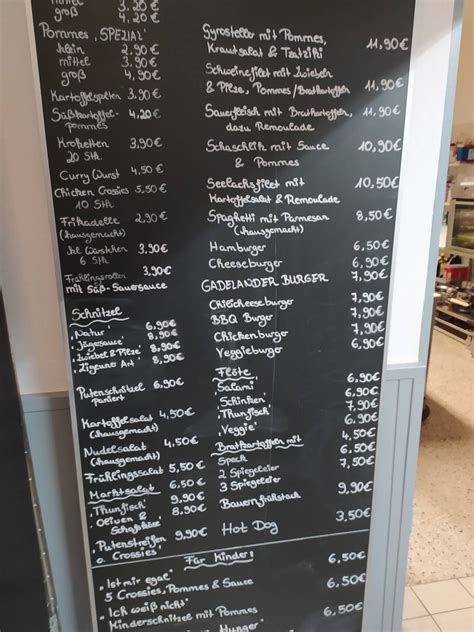 mittel 3.20 €
groß 4.20 €
Pommes 'SPEZIAL'
klein 2.90 €
mittel 3.90 €
groß 4.90 €
Kartoffelspalten 3.90 €
Süßkartoffel- 4.20 €
pommes
Kroketten 3.90 €
20 Stk.
Curry Wurst 4,50 €
Chicken Crossies 5,50 €
10 Stk
Frikadelle 2,90 €
(hausgemacht)
6 Stk 3.90 €
Frühlingsrollen 3.90 €
mit Süß-Sauersauce
Schnitzel
'Natur' 6,90 €
'Jägersauce' 8,90 €
'Zwiebel & Pilze' 8,90 €
'Zigeuner Art' 8,90 €
Putenschnitzel 6.90 €
paniert
Kartoffelsalat 4,50 €
(hausgemacht)
Nudelsalat 4.50 €
(hausgemacht)
Frühlingssalat 5,50 €
Marktsalat 6.50 €
'Thunfisch' 9,90 €
'Oliven & 8,90 €
Schafskäse'
'Putenstreifen 9,90 €
o. Crossies'
Gyrosteller mit Pommes, 11,90 €
Krautsalat & Tzatziki
Schweinefilet mit Zwiebeln 11,90 €
& Pilze, Pommes/Bratkartoffeln
Sauerfleisch mit Bratkartoffeln, 11,90 €
dazu Remoulade
Schaschlik mit Sauce 10,90 €
& Pommes
Seelachsfilet mit 10,50 €
Kartoffelsalat & Remoulade
Spaghetti mit Parmesan 8,50 €
(hausgemacht)
Hamburger 6,50 €
Cheeseburger 6,90 €
GADELANDER BURGER 7,90 €
Chilicheeseburger 7,90 €
BBQ Burger 7,90 €
Chickenburger 7,90 €
Veggieburger 6,50 €
Flöte
'Salami' 6,90 €
'Schinken' 6,90 €
'Thunfisch' 7,90 €
'Veggie' 6,90 €
Bratkartoffeln mit 4,50 €
Speck 6,50 €
2 Spiegeleier 6,50 €
3 Spiegeleier 7,50 €
Bauernfrühstück 9,90 €
Hot Dog 3.50 €
Für Kinder:
'Ist mir egal' 6,50 €
5 Crossies, Pommes & Sauce
'Ich weiß nicht' 6,50 €
Kinderschnitzel mit Pommes
Hunger' 6,50 €